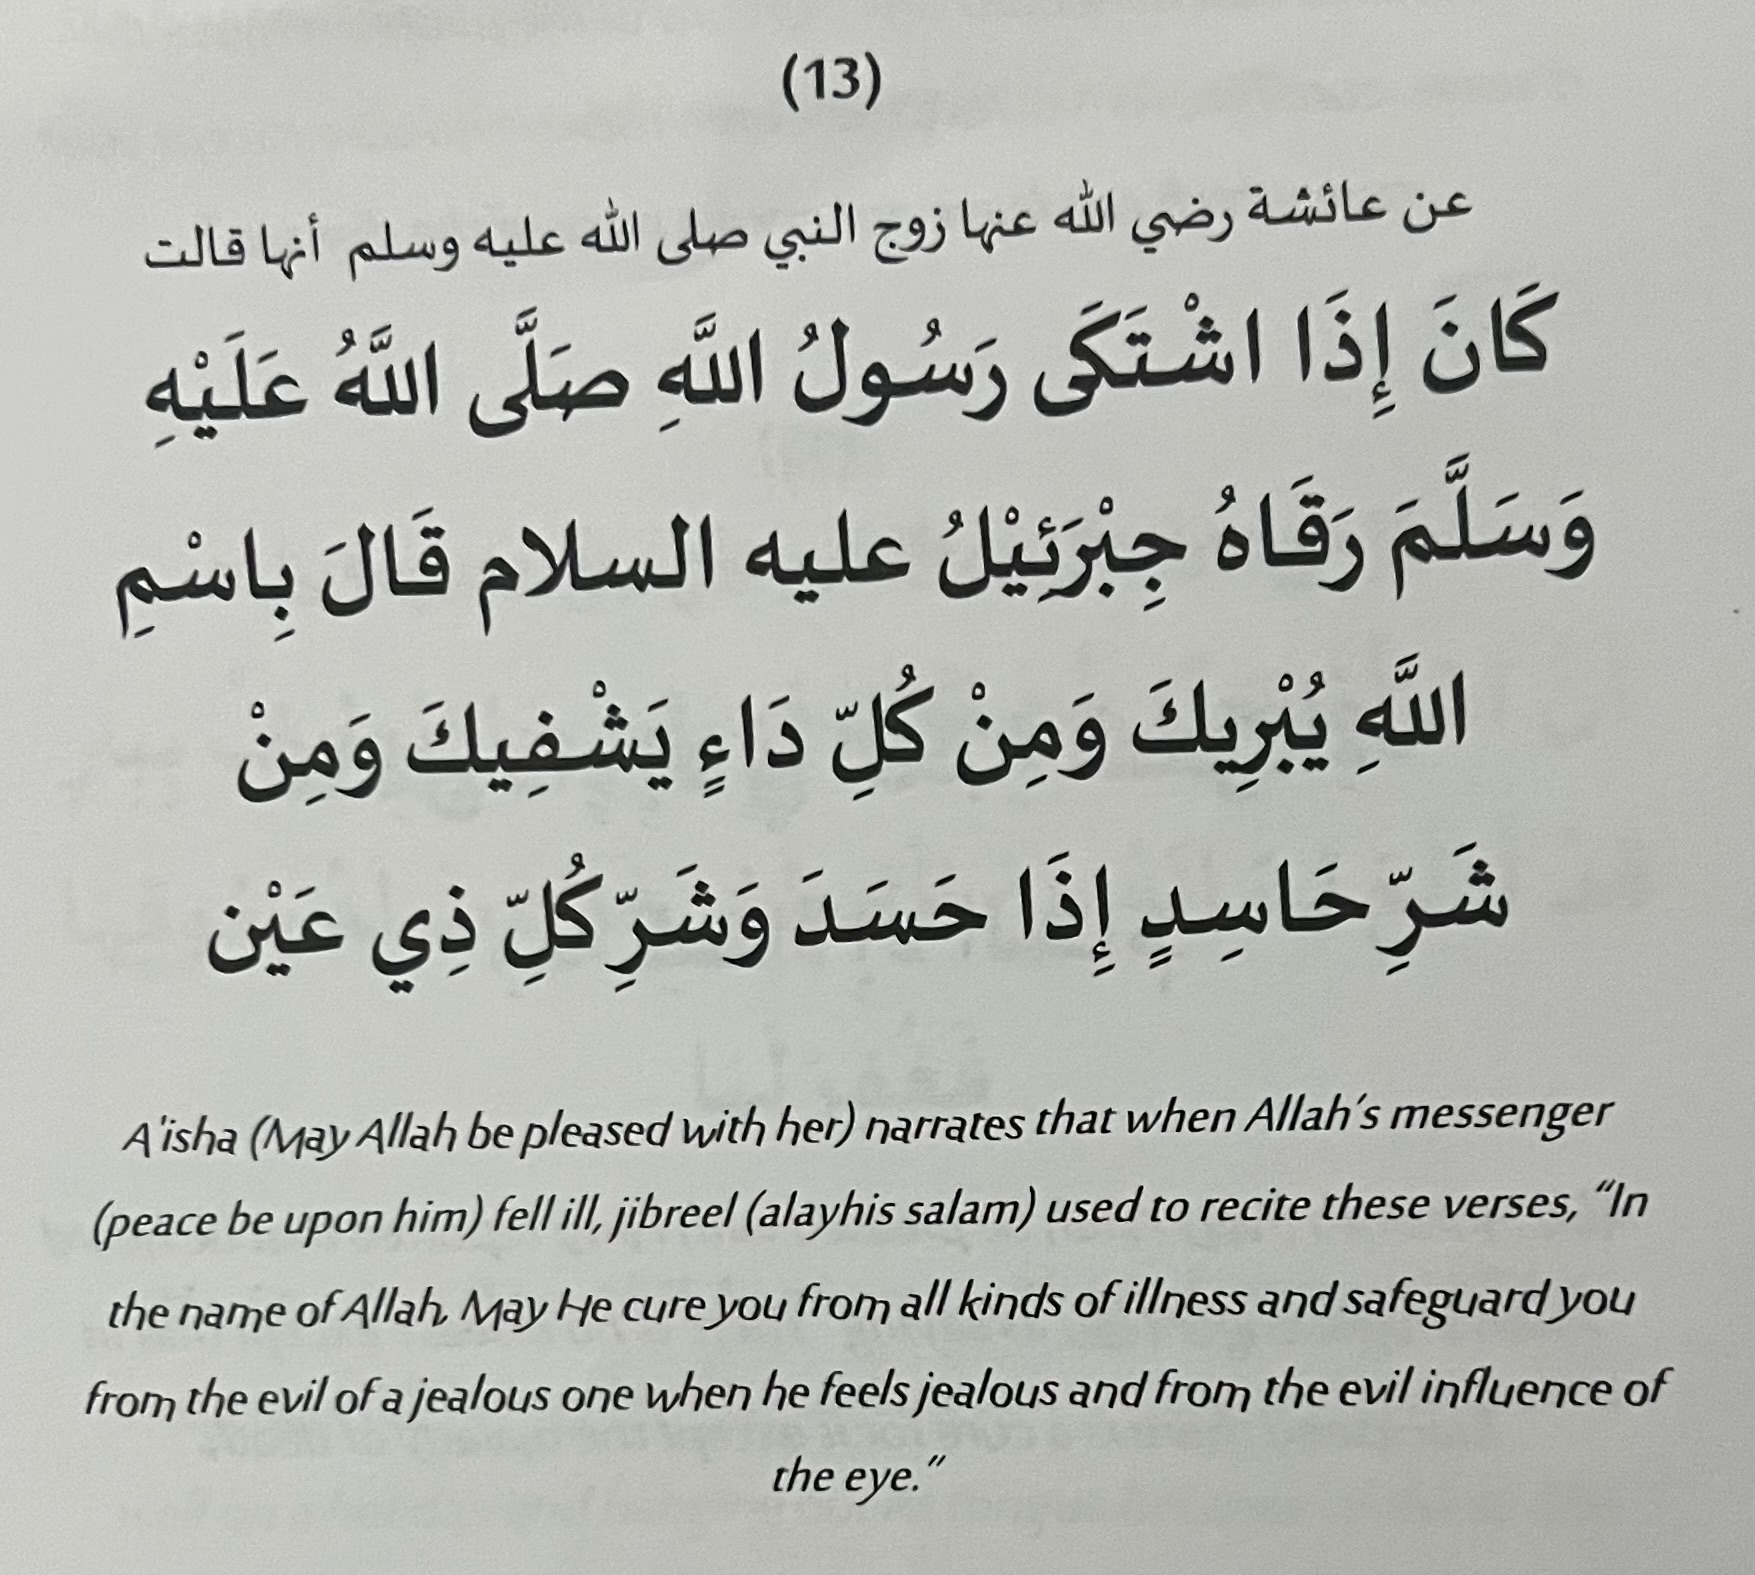 (13)
عن عائشة رضي الله عنها زوج النبي صلى الله عليه وسلم أنها قالت
كَانَ إِذَا اشْتَكَى رَسُولُ اللَّهِ صَلَّى اللَّهُ عَلَيْهِ
وَسَلَّمَ رَقَاهُ جِبْرَئِيْلُ عليه السلام قَالَ بِاسْمِ
اللَّهِ يُبْرِيكَ وَمِنْ كُلِّ دَاءٍ يَشْفِيكَ وَمِنْ
شَرِّ حَاسِدٍ إِذَا حَسَدَ وَشَرِّ كُلِّ ذِي عَيْن
A'isha (May Allah be pleased with her) narrates that when Allah’s messenger
(peace be upon him) fell ill, jibreel (alayhis salam) used to recite these verses, “In
the name of Allah. May He cure you from all kinds of illness and safeguard you
from the evil of a jealous one when he feels jealous and from the evil influence of
the eye.”